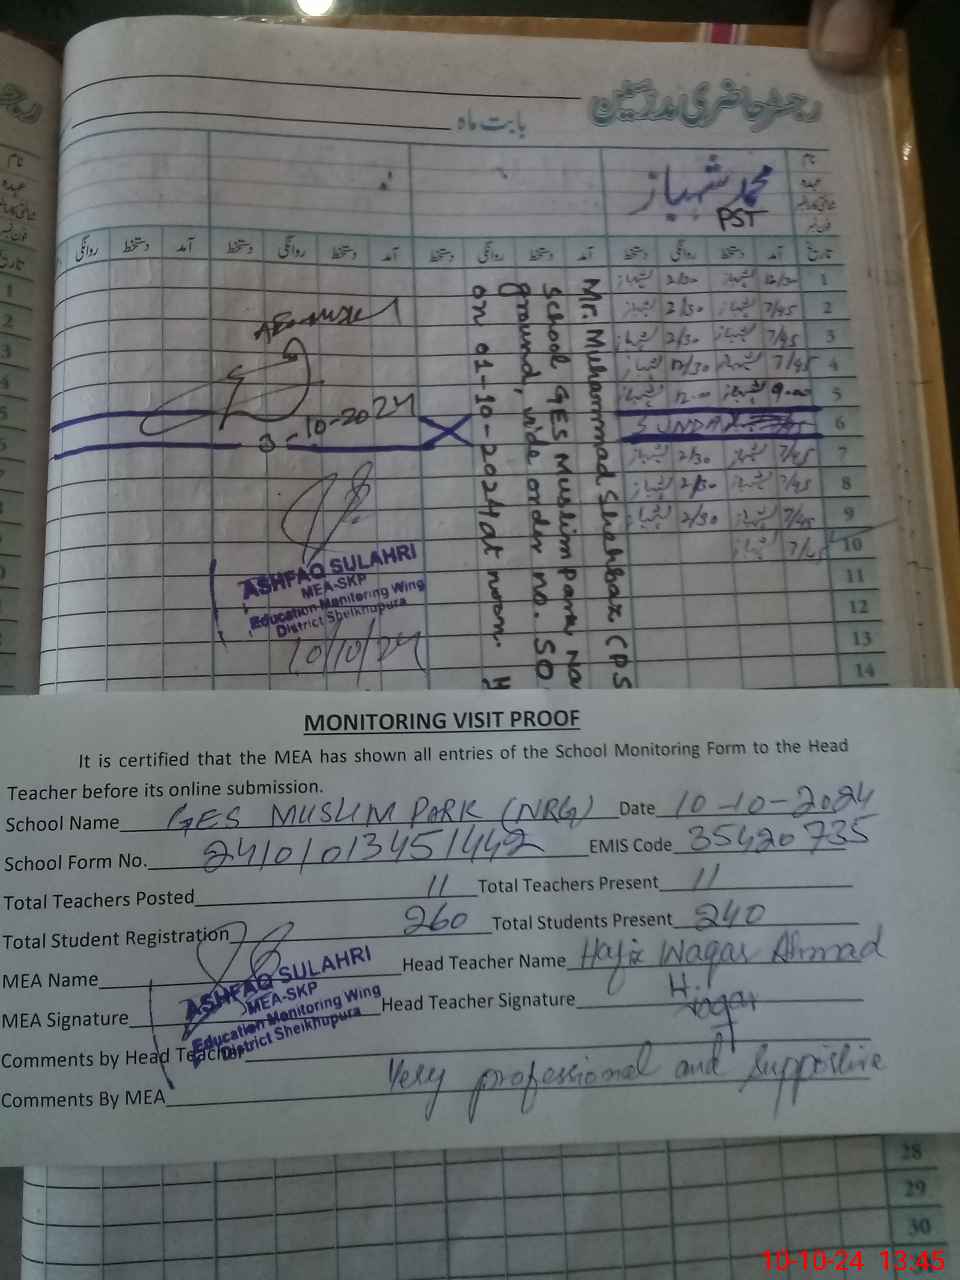 رجسٹر حاضری مدرسین
بابت ماہ
نام
عہدہ
محمد شہباز
PST
تاریخ آمد دستخط روانگی دستخط آمد دستخط روانگی دستخط آمد دستخط روانگی دستخط آمد دستخط روانگی
1 12/30 2/30
2 7/45 2/30
3 7/45 2/30
4 7/45 12/30
5 9-00 12-00
6 SUNDAY
7 7/45 2/30
8 7/45 2/30
9 7/45 2/30
10
11
12
13
14
Mr. Muhammad Shahbaz (PS
school GES Muslim Park Na
ground, vide order no. SO
on 01-10-2024 at noon. H
3-10-2024
ASHFAQ SULAHRI
MEA-SKP
Education Monitoring Wing
District Sheikhupura
10/10/24
MONITORING VISIT PROOF
It is certified that the MEA has shown all entries of the School Monitoring Form to the Head
Teacher before its online submission.
School Name GES MUSLIM PARK (NRG) Date 10-10-2024
School Form No. 24101013451442 EMIS Code 35420735
Total Teachers Posted 11 Total Teachers Present 11
Total Student Registration 260 Total Students Present 240
MEA Name Head Teacher Name Hafiz Waqas Ahmad
MEA Signature Head Teacher Signature
ASHFAQ SULAHRI
MEA-SKP
Education Monitoring Wing
District Sheikhupura
Comments by Head Teacher
Very professional and supportive
Comments By MEA
28
29
30
10-10-24 13:45